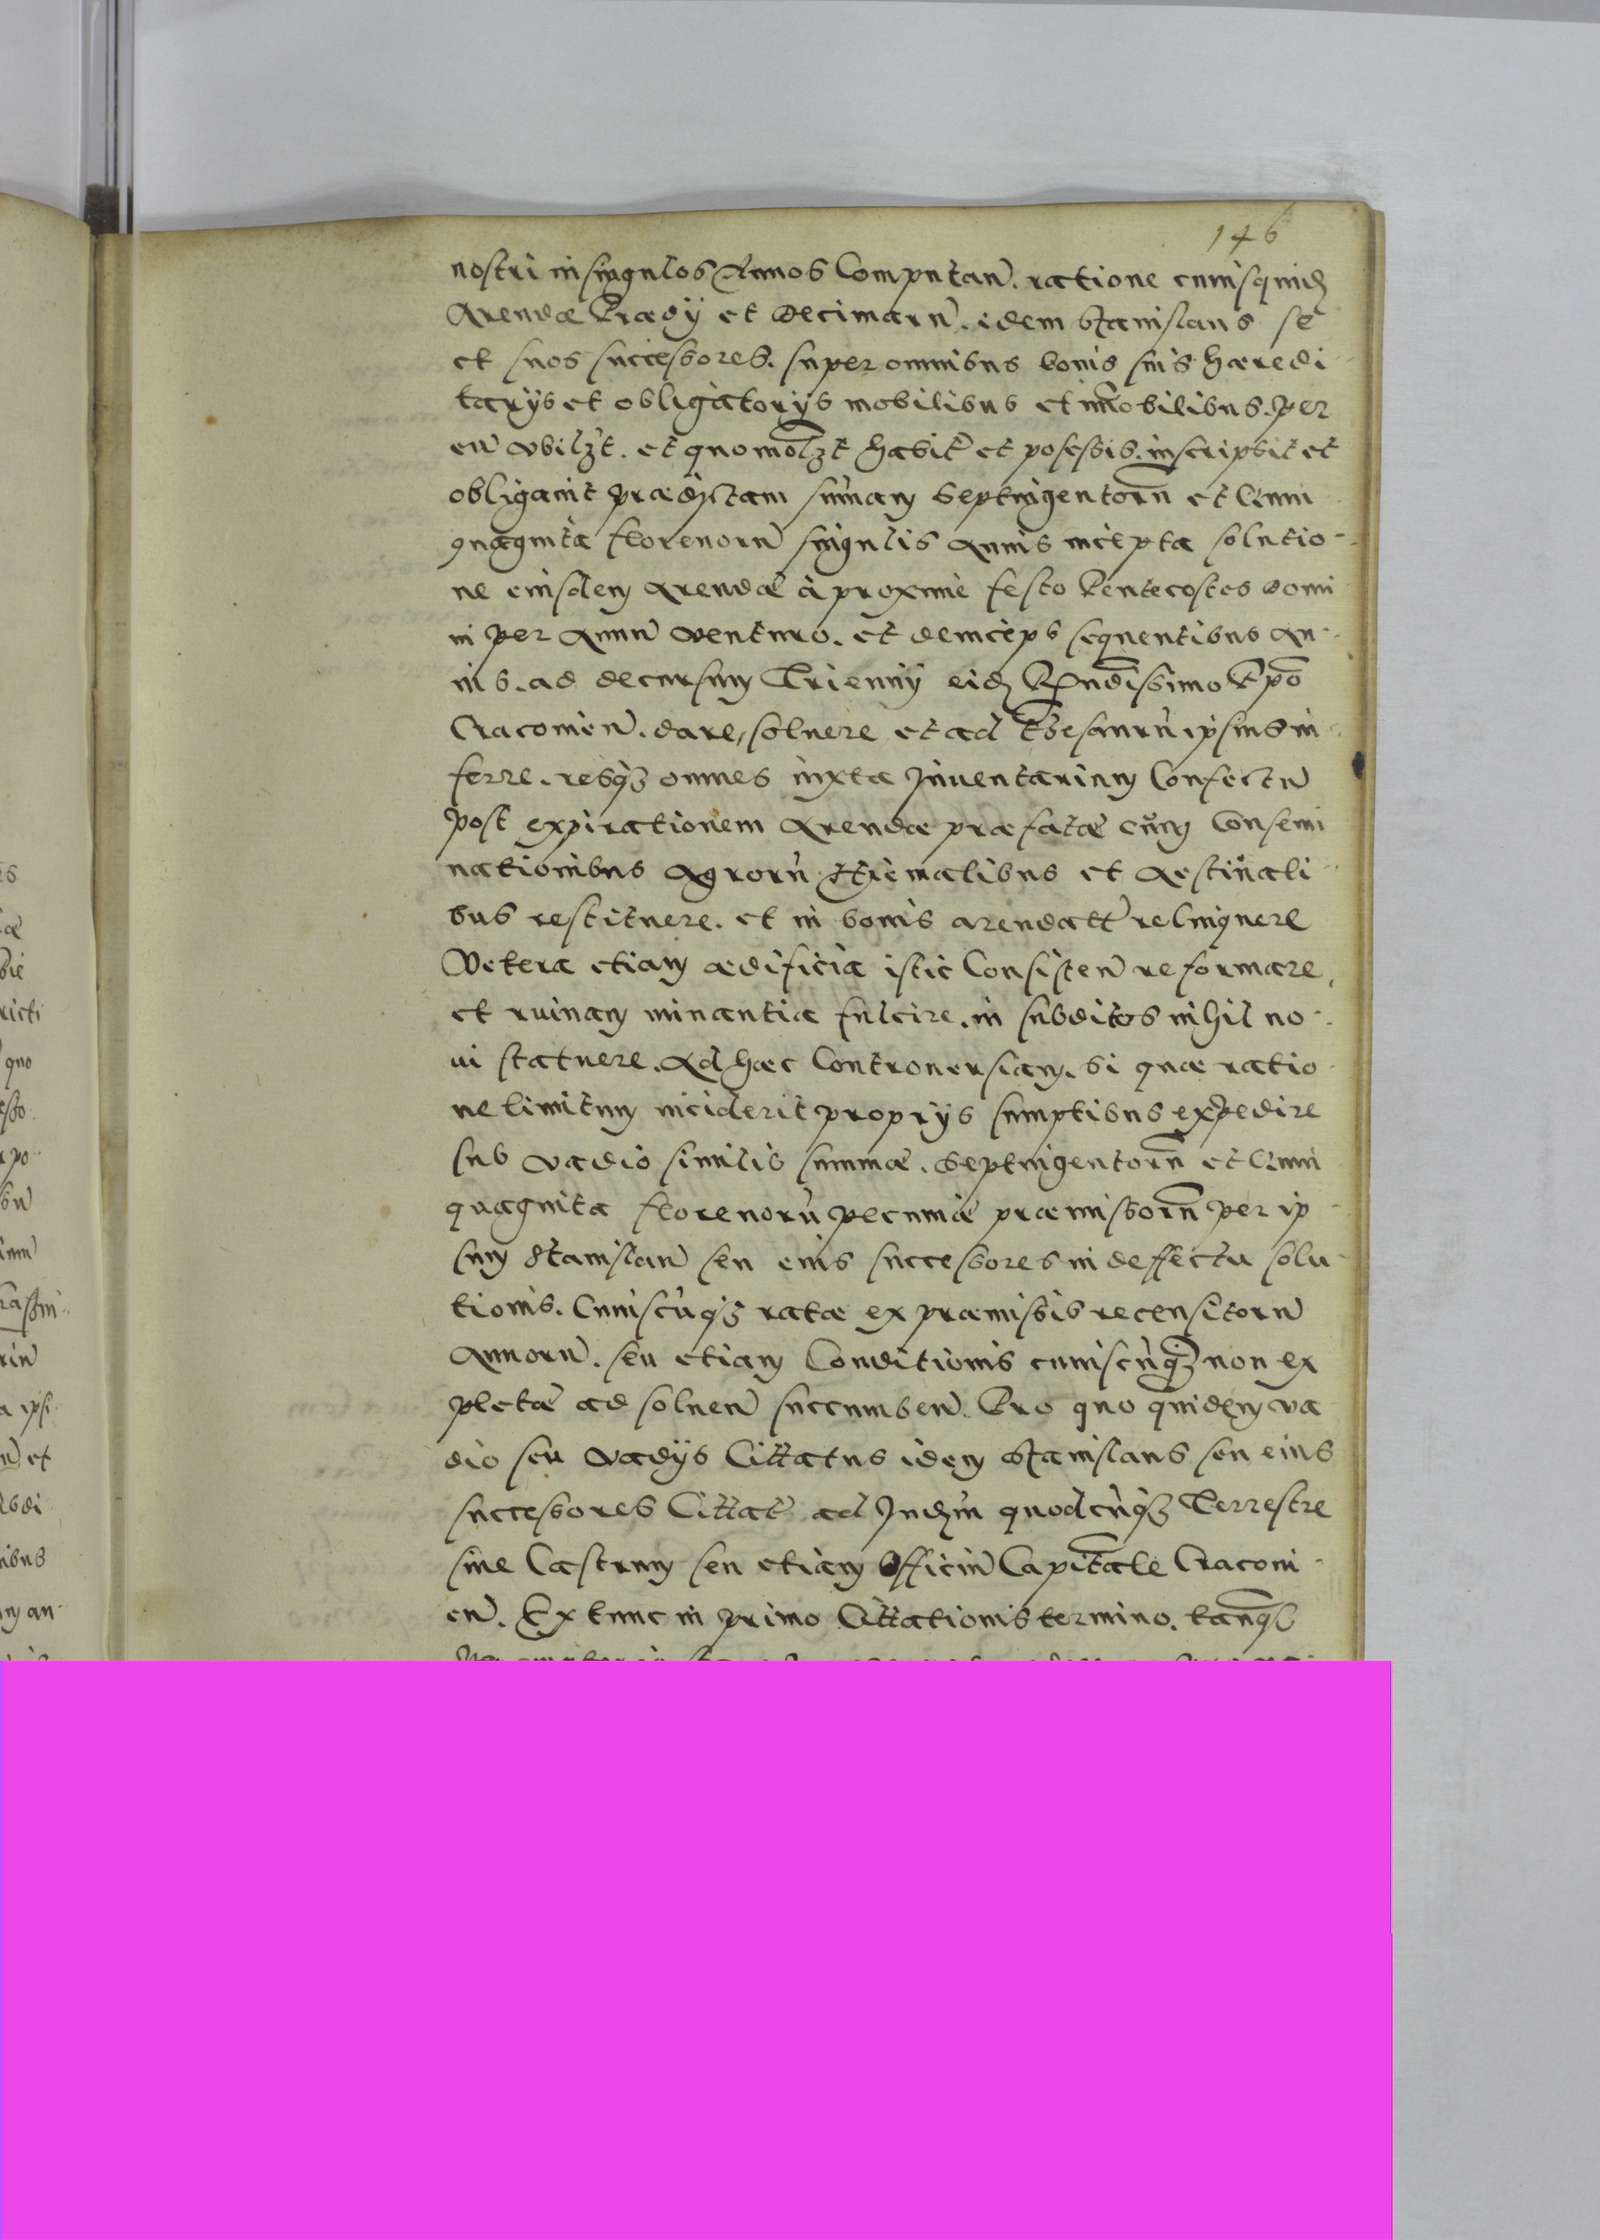 146
nostri in singulos Annos Computan̄. ratione cuiusquid
Arendæ Prædy et Decimarū. idem Stanislaus se
et suos successores. super omnibus bonis suis hæredi-
tarÿs et obligatorÿs mobilibus et im̄obilibus. per
eū vbilzt. et quomōlzt habit̄ et posessis. inscripsit et
obligauit prædictam sum̄am Septingentorū et Quin
quaginta florenorū singulis annis incepta solutio-
ne eiusdem Arendæ à proxime festo Pentecostes Domi
ni per Annū venturo. et deinceps sequentibus An-
nis. ad decursum Triennÿ eid Rn̄dissimo Ep̄o
Cracouien̄. dare, soluere et ad Thesaurū ipsius in
ferre. resq3 omnes iuxta Inuentarium Confectū
post expirationem Arendæ præfatæ cum Consemi
nationibus Agrorū Hiemalibus et Aestiuali-
bus restituere. et in bonis arendatt̄ relinquere
Vetera etiam ædificia istic Consisten̄ reformare,
et ruinam minantia fulcire. in subditos nihil no-
ui statuere. Ad hæc Controuersiam. si quæ ratio
ne limitum inciderit proprÿs sumptibus expedire
sub vadio similis summæ. Septingentorū et Quin
quaginta florenorū pecuniæ præmissorū per ip
sum Stanislaū seu eius successores in deffectu solu-
tionis. Cuiuscūq3 ratæ ex præmissis recensitorū
Annorū. seu etiam Conditionis cuiuscūq3 non ex
pletæ ad soluen̄ succumben̄. Pro quo quidem va
dio seu vadÿs Cittatus idem Stanislaus seu eius
successores Cittat̄ ad Iudm̄ quodcūq3 Terrestre
siue Castrum seu etiam Officiū Capitale̅ Cracoui-
en̄. Ex tunc in primo Cittationis termino. tanq̄